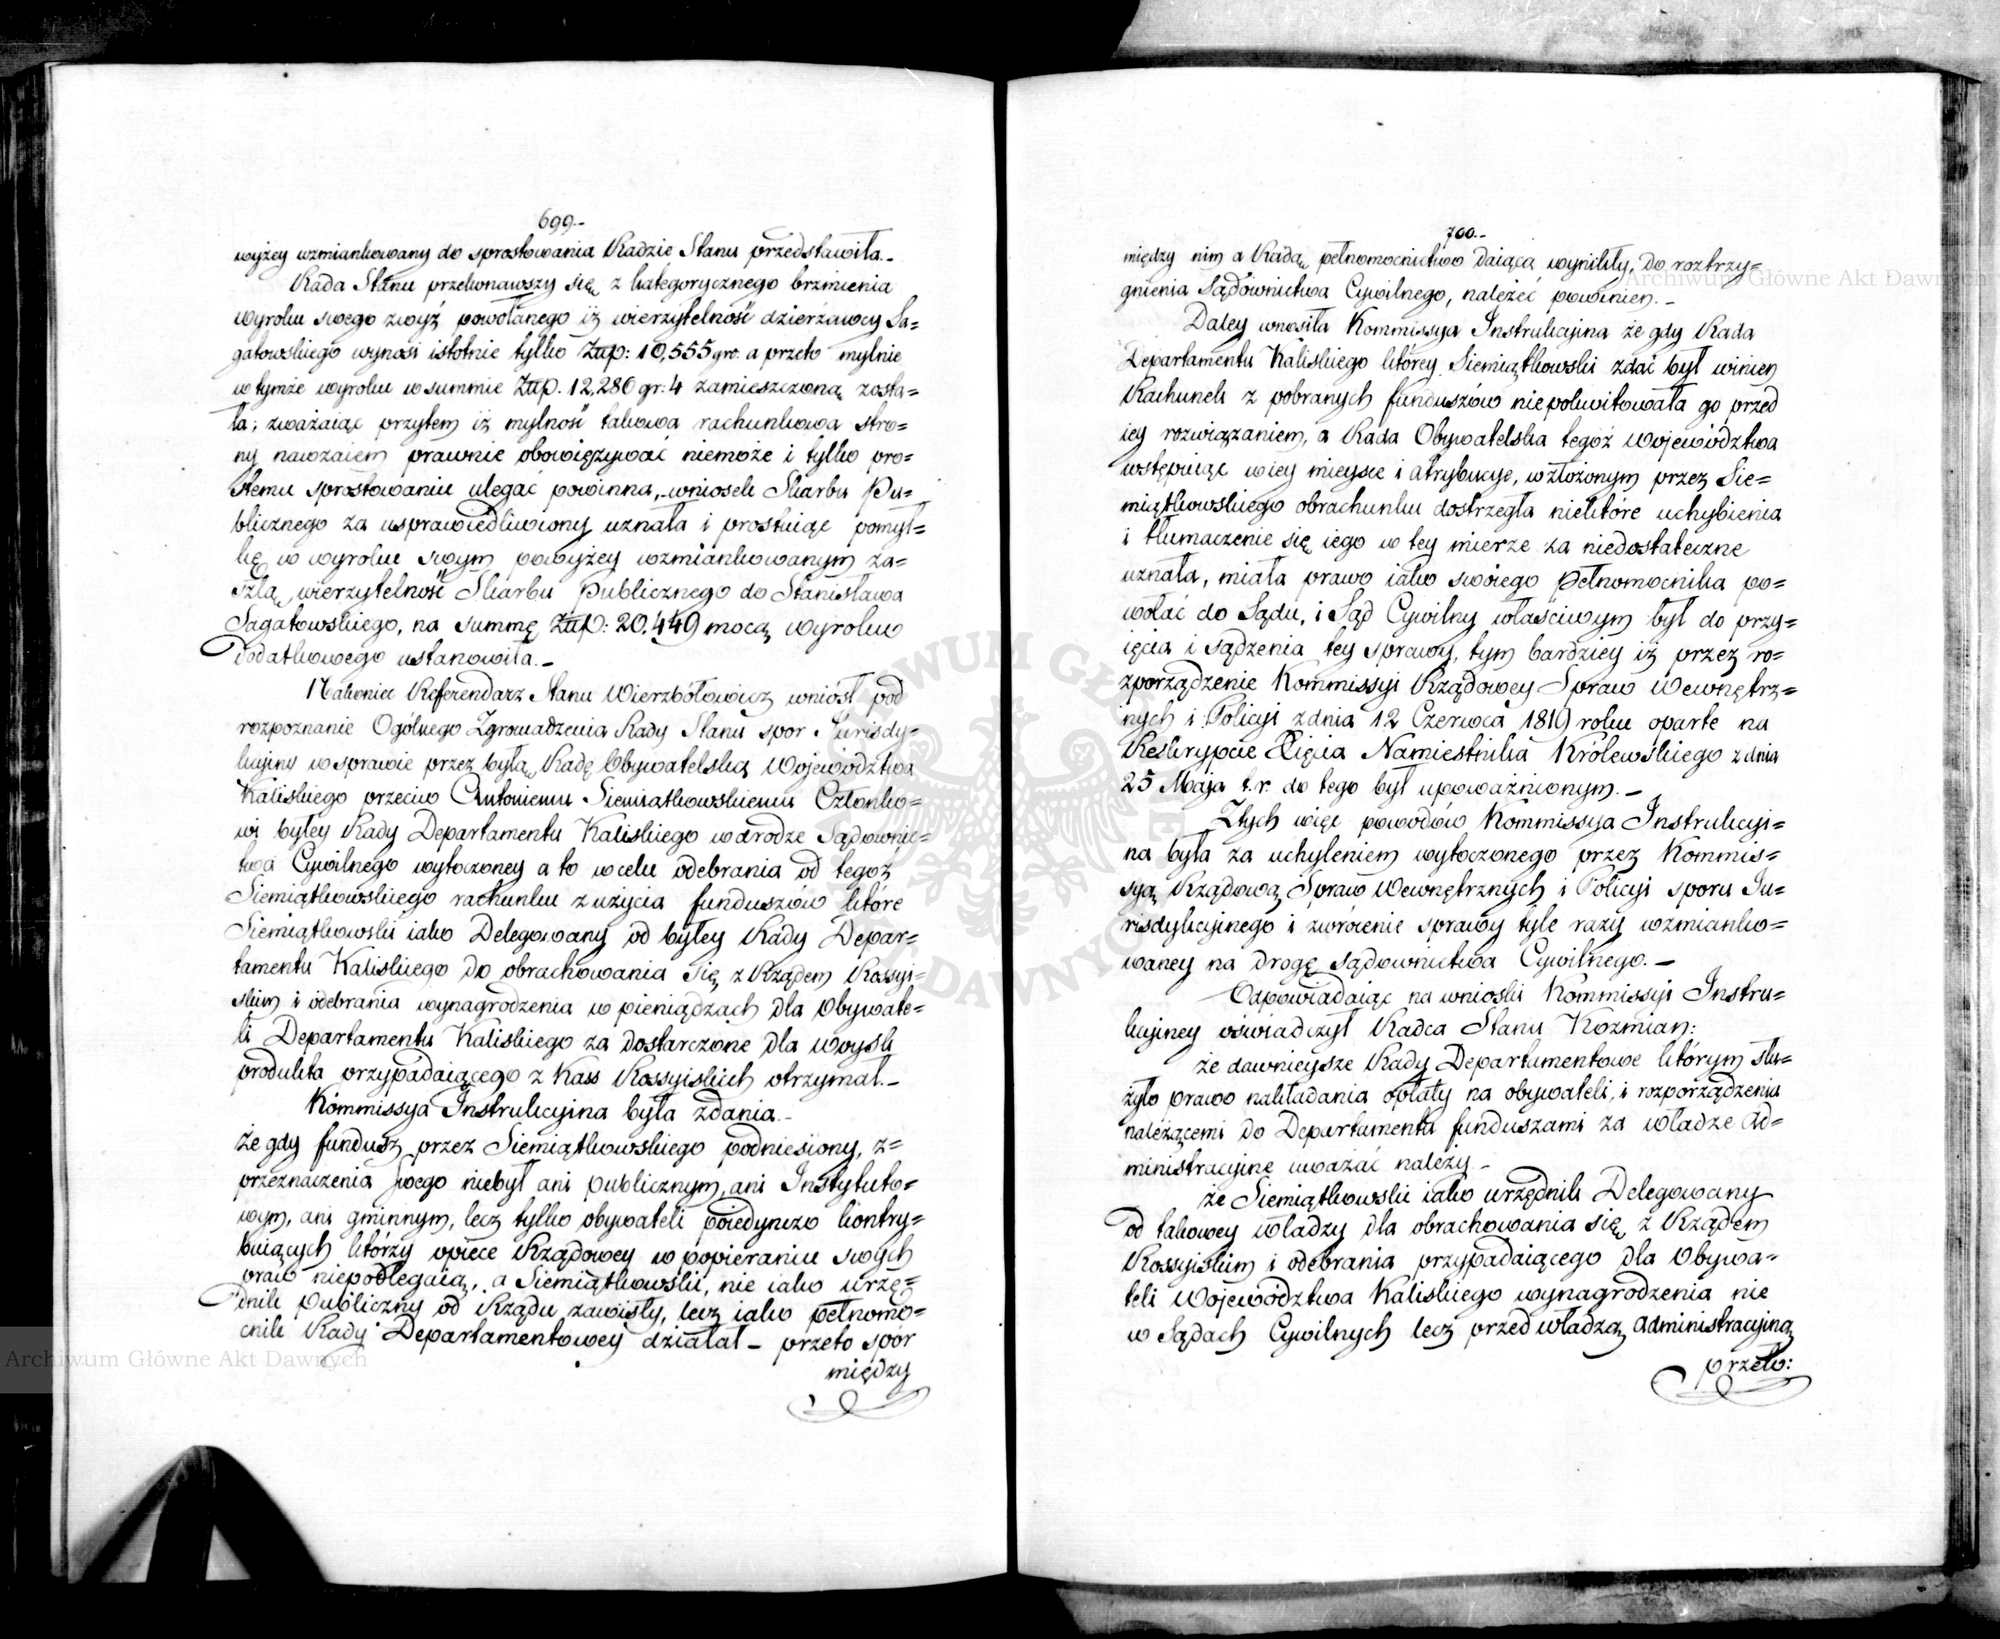 699.-
wyżey wzmiankowany do sprostowania Radzie Stanu przedstawiła.-
Rada Stanu przekonawszy się z kategorycznego brzmienia
wyroku swego zwyż powołanego iż wierzytelność dzierzawcy Sa=
gatowskiego wynosi istotnie tylko Złłp: 10,555 gro. a przeto mylnie
w tymże wyroku w summie Złłp. 12,280 gr: 4 zamieszczoną zosta=
ła; zważaiąc przytem iż mylność takowa rachunkowa stro=
ny nawzaiem prawnie obowięzywać niemoże i tylko pro=
stemu sprostowaniu ulegać powinna, wniosek Skarbu Pu=
blicznego za usprawiedliwiony uznała i prostuiąc pomył=
kę w wyroku swym powyżey wzmiankowanym za=
szłą, wierzytelność Skarbu Publicznego do Stanisława
Sagatowskiego, na summę Złłp: 20,449 mocą wyroku
Dodatkowego ustanowiła.-
Nakoniec Referendarz Stanu Wierzbółowicz wniósł pod
rozpoznanie Ogólnego Zgromadzenia Rady Stanu spor Jurisdy=
kcyiny w sprawie przez byłą Radę Obywatelską Województwa
Kaliskiego przeciw Antoniemu Siemiątkowskiemu Członko=
wi byłey Rady Departamentu Kaliskiego w drodze Sądownic=
twa Cywilnego wytoczoney a to w celu odebrania od tegoż
Siemiątkowskiego rachunku z użycia funduszów które
Siemiątkowski iako Delegowany od byłey Rady Depar=
tamentu Kaliskiego do obrachowania się z Rządem Rossyi=
skim i odebrania wynagrodzenia w pieniądzach dla Obywate=
li Departamentu Kaliskiego za dostarczone dla woysk
produkta przypadaiącego z Kass Rossyiskich otrzymał.-
Kommissya Instrukcyina była zdania.-
że gdy fundusz przez Siemiątkowskiego podniesiony, z=
przeznaczenia swego niebył ani publicznym, ani Instytuto=
wym, ani gminnym, lecz tylko obywateli poiedynczo kontry=
buiących którzy opiece Rządowey w popieraniu swych
praw niepodlegaią, a Siemiątkowski, nie iako urzę=
dnik publiczny od Rządu zawisły, lecz iako pełnomo=
cnik Rady Departamentowey działał – przeto spór
między
700.-
między nim a Radą pełnomocnictwo daiącą wynikły, do roztrzy=
gnienia Sądownictwa Cywilnego, należeć powinien.-
Daley wnosiła Kommissya Instrukcyina że gdy Rada
Departamentu Kaliskiego którey Siemiątkowski zdać był winien
Rachunek z pobranych funduszów niepokwitowała go przed
iey rozwiązaniem, a Rada Obywatelska tegoż Województwa
wstępuiąc w iey mieysce i atrybucye, w złożonym przez Sie=
miątkowskiego obrachunku dostrzegła niektóre uchybienia
i tłumaczenie się iego w tey mierze za niedostateczne
uznała, miała prawo iako swoiego Pełnomocnika po=
wołać do Sądu, i Sąd Cywilny właściwym był do przy=
ięcia i sądzenia tey sprawy, tym bardziey iż przez ro=
zporządzenie Kommissyi Rządowey Spraw Wewnętrz=
nych i Policyi z dnia 12 Czerwca 1819 roku oparte na
Reskrypcie Xięcia Namiestnika Królewskiego z dnia
25 Maja t.r. do tego był upoważnionym.-
Z tych więc powodów Kommissya Instrukcyi=
na była za uchyleniem wytoczonego przez Kommis=
syą Rządową Spraw Wewnętrznych i Policyi sporu Ju=
risdykcyinego i zwrócenie sprawy tyle razy wzmianko=
waney na drogę sądownictwa Cywilnego.-
Odpowiadaiąc na wnioski Kommissyi Instru=
kcyiney oświadczył Radca Stanu Kozmian:
że dawnieysze Rady Departamentowe którym słu=
żyło prawo nakładania opłaty na obywateli, i rozporządzenia
należącemi do Departamentu funduszami za władze Ad=
ministracyine uważać należy.-
że Siemiątkowski iako urzędnik Delegowany
od takowey władzy dla obrachowania się z Rządem
Rossyiskim i odebrania przypadaiącego dla Obywa=
teli Województwa Kaliskiego wynagrodzenia nie
w Sądach Cywilnych lecz przed władzą administracyiną
przeto:
Archiwum Główne Akt Dawnych
Archiwum Główne Akt Dawnych
ARCHIWUM GŁÓWNE AKT DAWNYCH